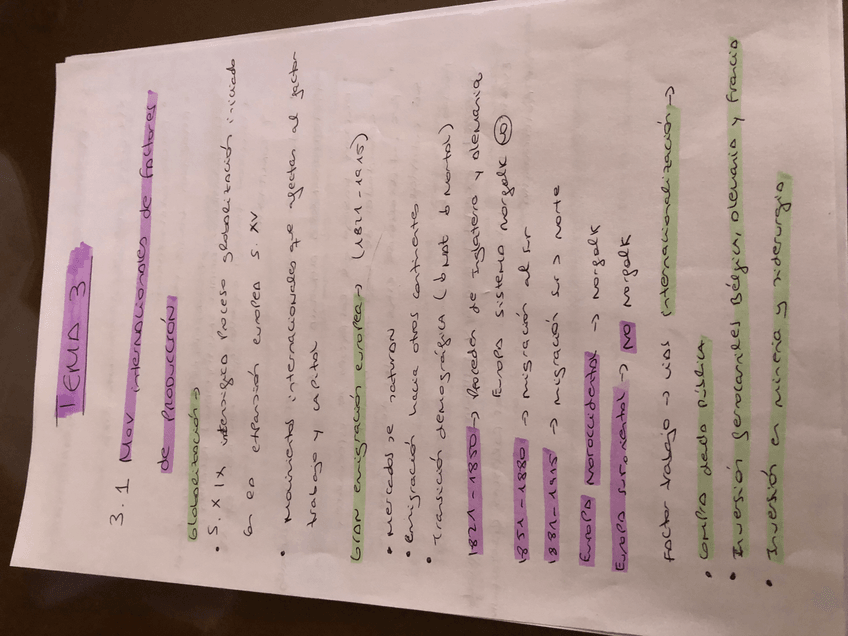 TEMA 3
3.1 Mov internacionales de factores
de PRODUCCIÓN
Globalización →
• S. XIX intensifica Proceso globalización iniciado
en la expansión europea S. XV
• Movimientos internacionales que afectan al factor
trabajo y capital
Gran emigración europea → (1821-1915)
• Mercados se saturan
• emigración hacia otros continentes
• Transición demográfica (b Nat b Mortal)
1821-1850 → Proceden de Inglaterra y alemania
Europa sistema Norfolk
1851-1880 → migración al sur
1881-1915 → migración sur > norte
Europa Noroccidental → Norfolk
Europa suroriental → NO Norfolk
Factor trabajo → vías internacionalización →
• compra deuda pública
• Inversión ferrocarriles Bélgica, alemania y Francia
• Inversión en minería y siderurgia